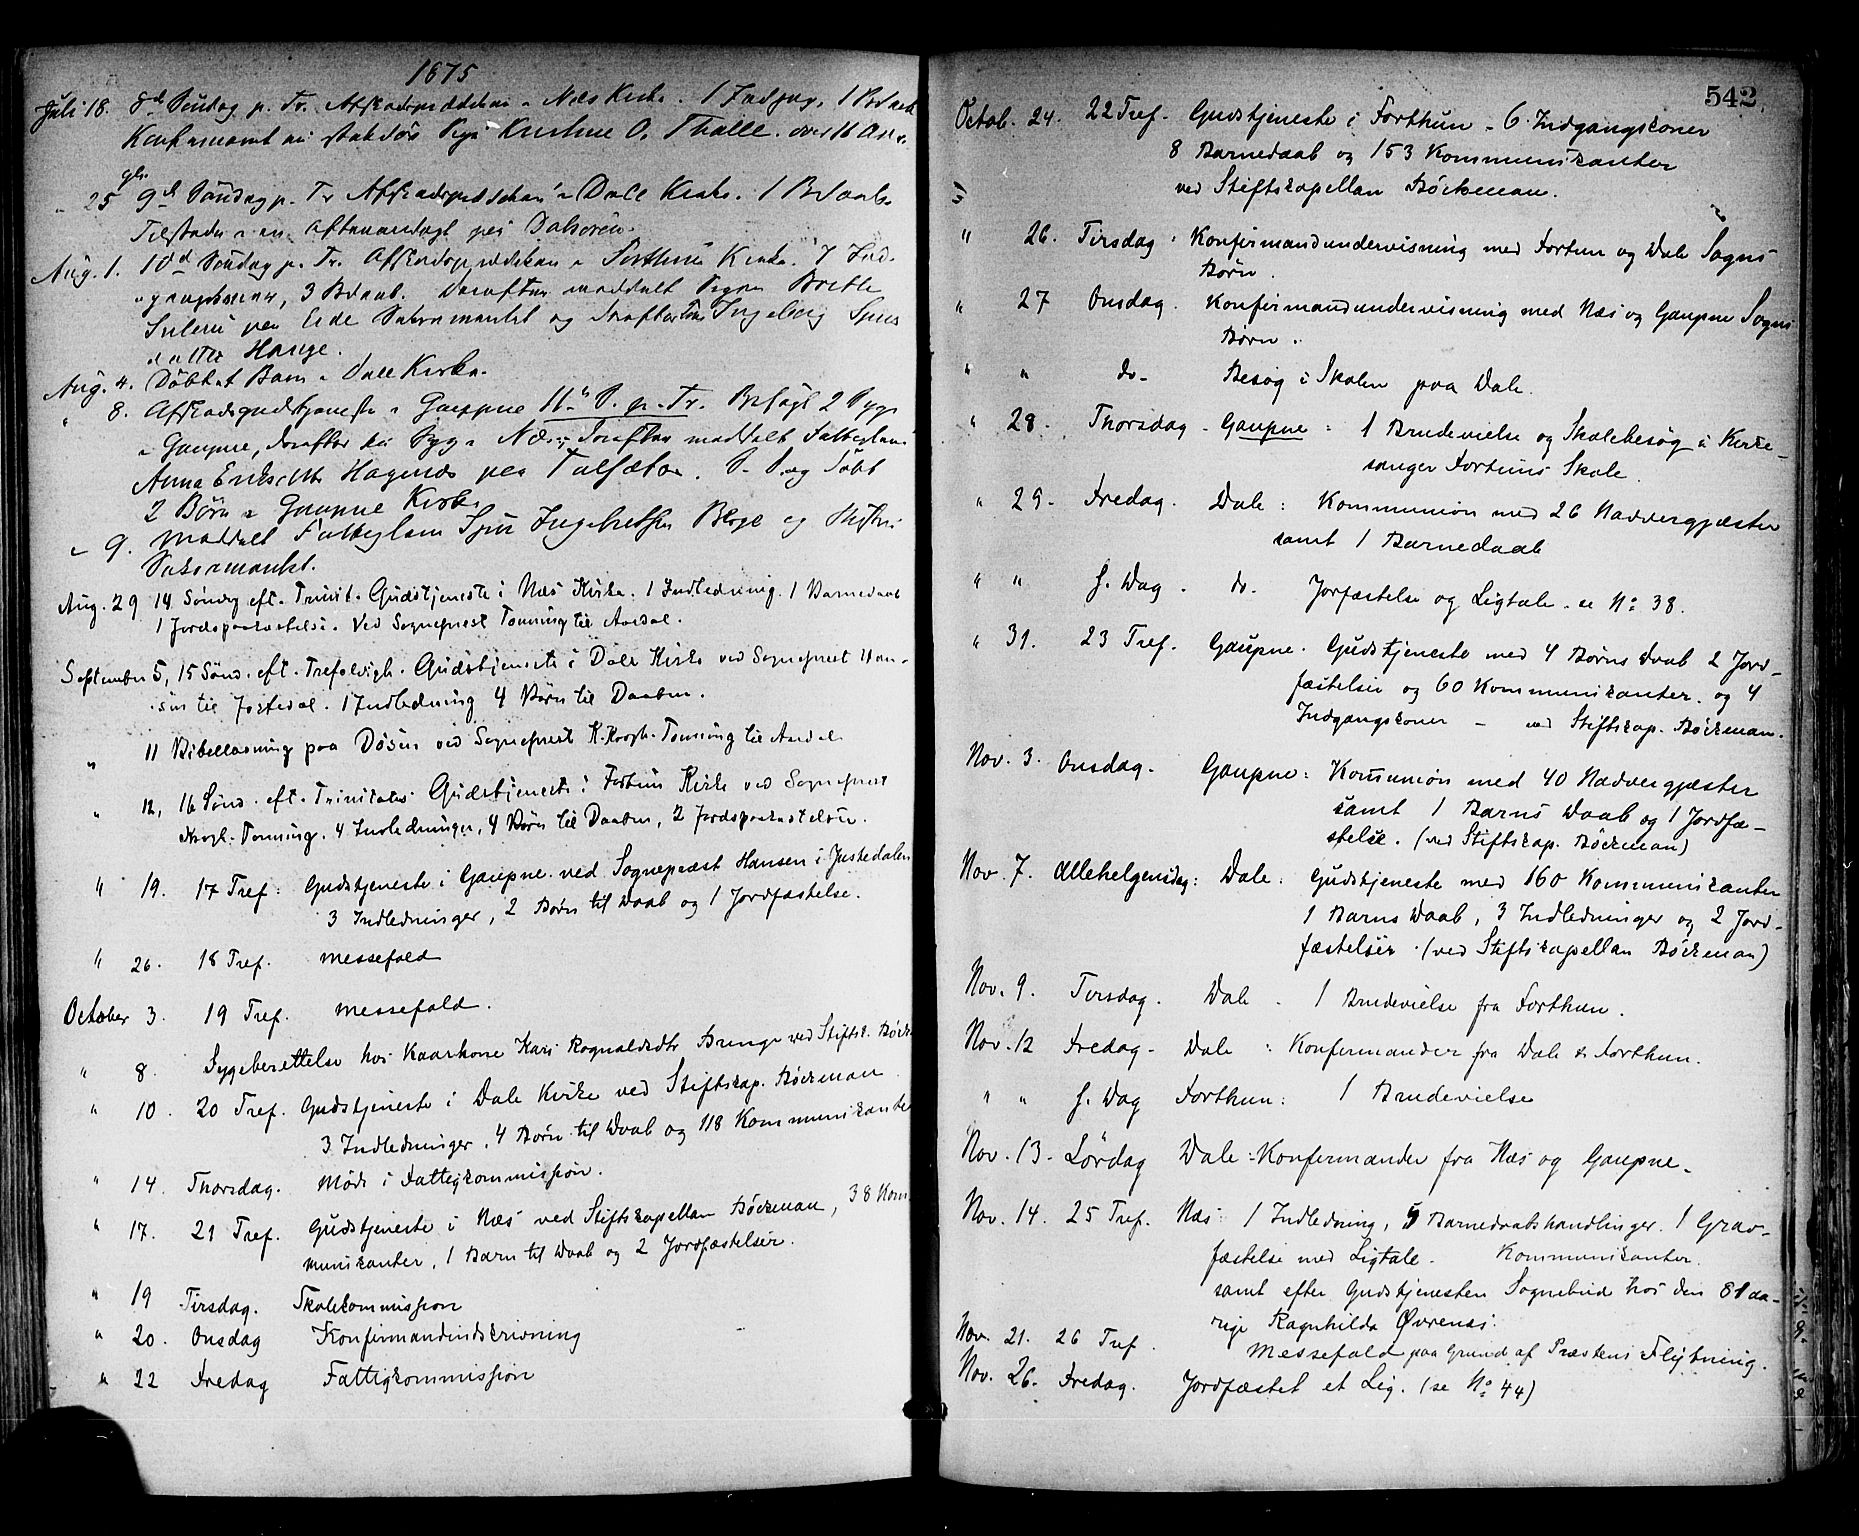 1875
Juli 18. 8de Søndag p. Tr. Afskedsprædiken i Næs Kirke. 1 Indgang, 1 Bdaab
Kristine O. Thalle. over 16 Aar.
" 25 9de Søndag p. Tr Afskedsprædiken i Dale Kirke. 1 Bdaab.
Tilstede i en Aftenandagt paa Dalsøren.
Aug. 1. 10d Søndag p. Tr. Afskedsprædiken i Forthun Kirke. 7 Ind-
gangskoner, 3 Bdaab. Derefter meddelt Brethe
paa Eide Sakramentet og derefter Ingeborg
datter Hauge.
Aug. 4. Døbt et Barn i Dale Kirke.
" 8. Afskedsgudstjeneste i Gaupne 11te S. p. Tr. Besøgt 2 Syge
i Gaupne, derefter en Syg i Næs; derefter meddelt Fattiglem
Anna Eriksdtr Hagenæs paa S. S. og døbt
2 Børn i Gaupne Kirke
" 9. Meddelt Fattiglem Ingebretsen Berge og
Sakramentet.
Aug. 29 14 Søndag eft. Trinit. Gudstjeneste i Næs Kirke. 1 Indledning. 1 Barnedaab
1 Jordspaakastelse. Ved Sogneprest Tonning til Aardal.
September 5, 15 Sønd. eft. Trefoldigh. Gudstjeneste i Dale Kirke ved Sogneprest Han-
sen til Jostedal. 1 Indledning 4 Børn til Daaben.
" 11 Bibellæsning paa Døsen ved Sogneprest K. Krogh-Tonning til Aardal
" 12, 16 Sønd. eft. Trinitatis Gudstjeneste i Fortun Kirke ved Sogneprest
Krogh-Tonning. 4 Indledninger, 4 Børn til Daaben, 2 Jordspaakastelser.
" 19. 17 Tref: Gudstjeneste i Gaupne ved Sognepræst Hansen i Justedalen
3 Indledninger, 2 Børn til Daab og 1 Jordfæstelse.
" 26. 18 Tref. Messefald
October 3. 19 Tref. Messefald.
" 8. Sygeberettelse hos Kaarkone Kari Rognaldsdtr Bringe ved Stiftsk. Böck
" 10. 20 Tref. Gudstjeneste i Dale Kirke ved Stiftskap. Böckman
3 Indledninger, 4 Børn til Daab og 118 Kommunikanter
" 14. Thorsdag. Møde i Fattigkommission.
" 17. 21 Tref. Gudstjeneste i Næs ved Stiftskapellan Böckman, 38 Kom-
munikanter, 1 Barn til Daab og 2 Jordfæstelser.
" 19 Tirsdag. Skolekommission
" 20. Onsdag Konfirmandindskrivning
" 22 Fredag Fattigkommission
542.
Octob. 24. 22 Tref. Gudstjeneste i Forthun - 6 Indgangskoner
8 Barnedaab og 153 Kommunikanter
ved Stiftskapellan Böckman.
" 26. Tirsdag: Konfirmandundervisning med Fortun og Dale Sogns
Børn.
" 27 Onsdag. Konfirmandundervisning med Næs og Gaupne Sogns
Børn.
" " do- Besøg i Skolen paa Dale.
" 28. Thorsdag - Gaupne: 1 Brudevielse og Skolebesøg i Kirke-
sanger Fortuns Skole.
" 29. Fredag. Dale: Kommunion med 26 Nadvergjæster
samt 1 Barnedaab
" " s. Dag. do. Jordfæstelse og Ligtale. se No 38.
" 31. 23 Tref. Gaupne. Gudstjeneste med 4 Børns Daab 2 Jord-
fæstelser og 60 Kommunikanter. og 4
Indgangskoner - ved Stiftskap. Böckman.
Nov. 3. Onsdag. Gaupne: Kommunion med 40 Nadvergjæster
samt 1 Barns Daab og 1 Jordfæ-
stelse. (ved Stiftskap. Böckman)
Nov. 7. Allehelgensdag: Dale: Gudstjeneste med 160 Kommunikanter
1 Barns Daab, 3 Indledninger og 2 Jord-
fæstelser. (ved Stiftskapellan Böckman)
Nov. 9. Tirsdag. Dale. 1 Brudevielse fra Forthun.
Nov. 12 Fredag - Dale: Konfermander fra Dale & Forthun.
" " s. Dag Forthun: 1 Brudevielse
Nov. 13. Lördag Dale: Konfermander fra Næs og Gaupne.
Nov. 14. 25 Tref. Næs: 1 Indledning, 5 Barnedaabshandlinger. 1 Grav-
fæstelse med Ligtale. Kommunikanter.
samt efter Gudstjenesten Sognebud hos den 81 aa-
rige Ragnhilda Øvrenæs.
Nov. 21. 26 Tref. Messefald paa Grund af Præstens Flytning.
Nov. 26. Fredag. Jordfæstet et Lig. (se No 44)